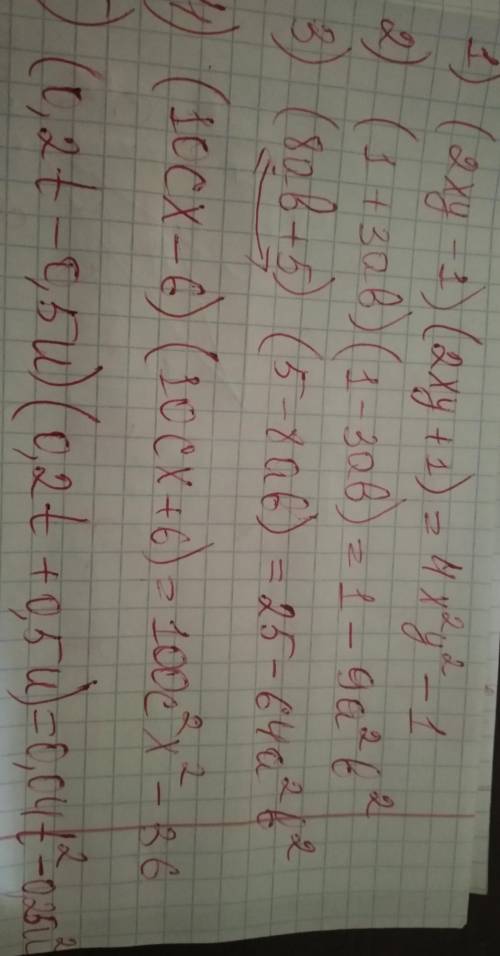 1) (2xy - 1)(2xy + 1) = 4x²y² - 1
2) (1 + 3ab)(1 - 3ab) = 1 - 9a²b²
3) (8ab + 5)(5 - 8ab) = 25 - 64a²b²
4) (10cx - 6)(10cx + 6) = 100c²x² - 36
5) (0,2t - 0,5u)(0,2t + 0,5u) = 0,04t² - 0,25u²